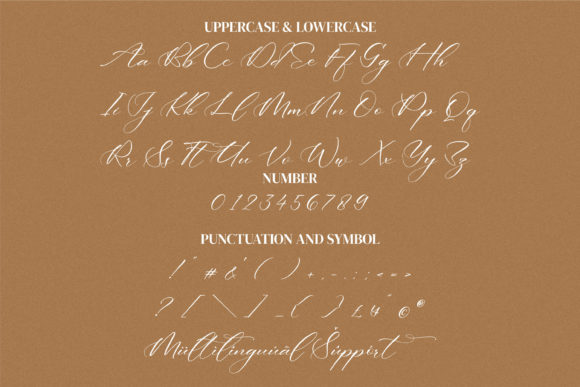 UPPERCASE & LOWERCASE
Aa Bb Cc Dd Ee Ff Gg Hh
Ii Jj Kk Ll Mm Nn Oo Pp Qq
Rr Ss Tt Uu Vv Ww Xx Yy Zz
NUMBER
0 1 2 3 4 5 6 7 8 9
PUNCTUATION AND SYMBOL
! " # & ' ( ) + , - . : ; < = >
? [ \ ] _ { } £ ¥ © ®